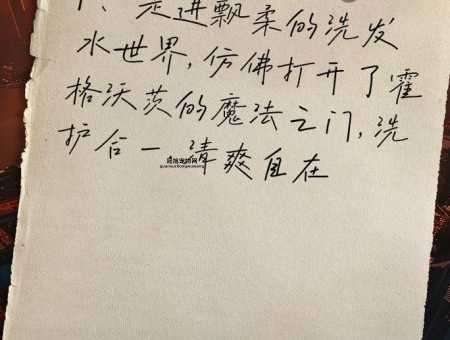 1、走进飘柔的洗发
水世界,仿佛打开了霍
格沃茨的魔法之门,洗
护合一 清爽自在